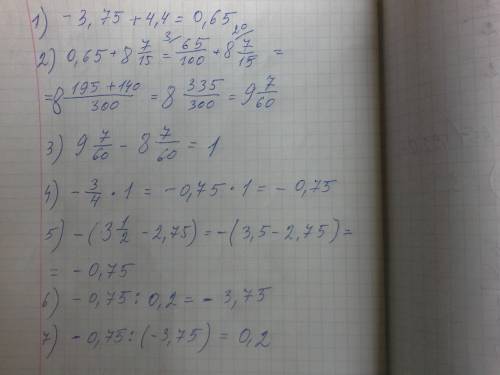 1) -3,75 + 4,4 = 0,65
2) 0,65 + 8 7/15 = 3/ 65/100 + 8 20/ 7/15 =
= 8 (195 + 140)/300 = 8 335/300 = 9 7/60
3) 9 7/60 - 8 7/60 = 1
4) - 3/4 · 1 = -0,75 · 1 = - 0,75
5) -(3 1/2 - 2,75) = -(3,5 - 2,75) =
= - 0,75
6) - 0,75 : 0,2 = - 3,75
7) - 0,75 : (-3,75) = 0,2